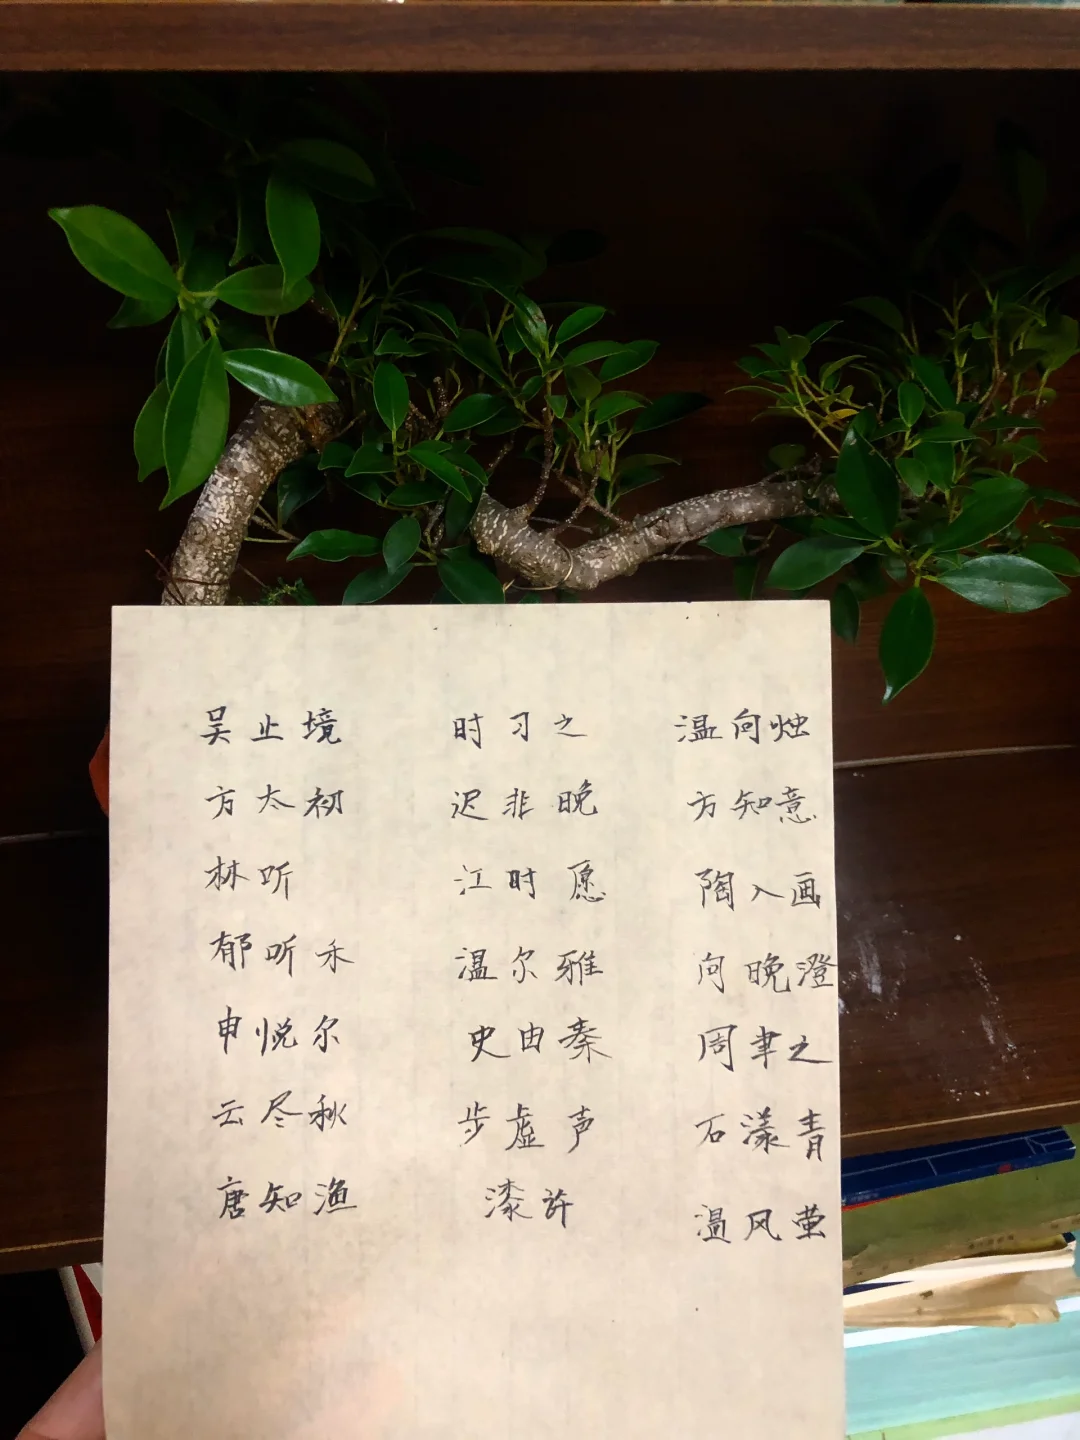 吴止境 时习之 温向烛
方太初 迟非晚 方知意
林听 江时愿 陶入画
郁听禾 温尔雅 向晚澄
申悦尔 史由秦 周聿之
云尽秋 步虚声 石漾青
唐知渔 漆許 温风萤